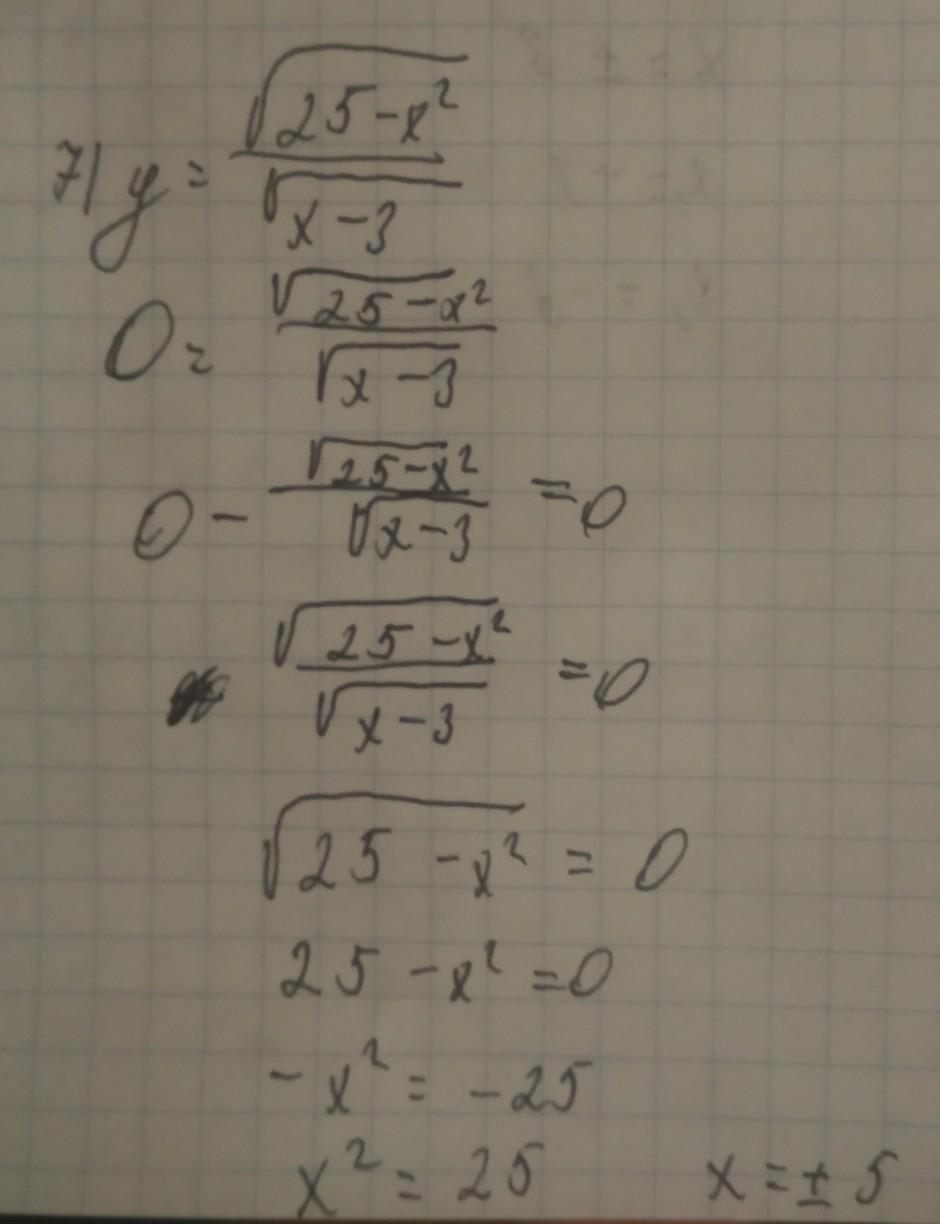 7) y = √(25-x²) / √(x-3)
0 = √(25-x²) / √(x-3)
0 - √(25-x²) / √(x-3) = 0
√(25-x²) / √(x-3) = 0
√(25-x²) = 0
25-x² = 0
-x² = -25
x² = 25 x = ± 5